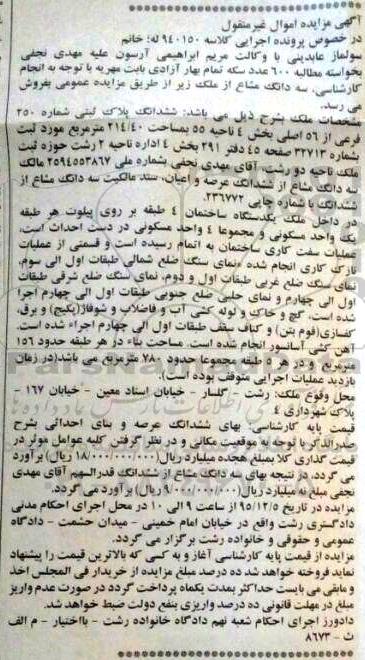 آگهی مزایده اموال غیرمنقول
در خصوص پرونده اجرایی کلاسه ۹۴۰۱۵۰ له: خانم
سولماز عابدینی با وکالت مریم ابراهیمی آرسون علیه مهدی نجفی
بخواسته مطالبه ۶۰۰ عدد سکه تمام بهار آزادی بابت مهریه با توجه به انجام
کارشناسی، سه دانگ مشاع از ملک زیر از طریق مزایده عمومی بفروش
می رسد.
مشخصات ملک بشرح ذیل می باشد: ششدانگ پلاک ثبتی شماره ۲۵۰
فرعی از ۵۶ اصلی بخش ۴ ناحیه ۵۵ بمساحت ۲۱۴/۴۰ مترمربع مورد ثبت
شماره ۳۲۷۱۳ صفحه ۴۵ دفتر ۲۹۱ بخش ۴ اداره ناحیه ۲ رشت حوزه ثبت
ملک ناحیه دو رشت، آقای مهدی نجفی بشماره ملی ۲۵۹۴۵۵۳۸۶۷ مالک
سه دانگ مشاع از ششدانگ عرصه و اعیان، سند مالکیت سه دانگ مشاع از
ششدانگ با شماره چاپی ۲۳۶۷۷۲.
در داخل ملک یکدستگاه ساختمان ۴ طبقه بر روی پیلوت هر طبقه
یک واحد مسکونی و مجموعا ۴ واحد مسکونی در دست احداث است،
عملیات سفت کاری ساختمان به اتمام رسیده است و قسمتی از عملیات
نازک کاری انجام شده، نمای سنگ ضلع شمالی طبقات اول الی سوم،
نمای سنگ ضلع غربی طبقات اول و دوم، نمای سنگ ضلع شرقی طبقات
اول الی چهارم و نمای حلبی ضلع جنوبی طبقات اول الی چهارم اجرا
شده است، گچ و خاک و لوله کشی آب و فاضلاب و شوفاژ(پکیج) و برق،
کفسازی(فوم بتن) و کناف سقف طبقات اول الی چهارم اجراء شده است.
آهن کشی آسانسور انجام شده است. مساحت بناء در هر طبقه حدود ۱۵۶
مترمربع و در ۵ طبقه مجموعا حدود ۷۸۰ مترمربع می باشد(در زمان
بازدید عملیات اجرایی متوقف بوده است).
محل وقوع ملک: رشت - گلسار - خیابان استاد معین - خیابان ۱۶۷ -
پلاک شهرداری ۴
قیمت پایه کارشناسی: بهای ششدانگ عرصه و بنای احداثی بشرح
صدرالذکر با توجه به موقعیت مکانی و در نظر گرفتن کلیه عوامل موثر در
قیمت گذاری کلا بمبلغ هجده میلیارد ریال(۱۸/۰۰۰/۰۰۰/۰۰۰ریال) برآورد
می گردد، در نتیجه بهای سه دانگ مشاع از ششدانگ قدرالسهم آقای مهدی
نجفی مبلغ نه میلیارد ریال(۹/۰۰۰/۰۰۰/۰۰۰ریال) برآورد می گردد.
مزایده در تاریخ ۹۵/۱۲/۵ از ساعت ۹ الی ۱۰ در محل اجرای احکام مدنی
دادگستری رشت واقع در خیابان امام خمینی - میدان حشمت - دادگاه
عمومی و حقوقی و خانواده رشت برگزار می گردد.
مزایده از قیمت پایه کارشناسی آغاز و به کسی که بالاترین قیمت را پیشنهاد
نماید فروخته خواهد شد ده درصد مبلغ مزایده از خریدار فی المجلس اخذ
و مابقی می بایست حداکثر بمدت یکماه پرداخت گردد در صورت عدم واریز
مبلغ در مهلت قانونی ده درصد واریزی بنفع دولت ضبط خواهد شد.
دادورز اجرای احکام شعبه نهم دادگاه خانواده رشت - بااختیار - م الف
ث - ۸۶۷۳